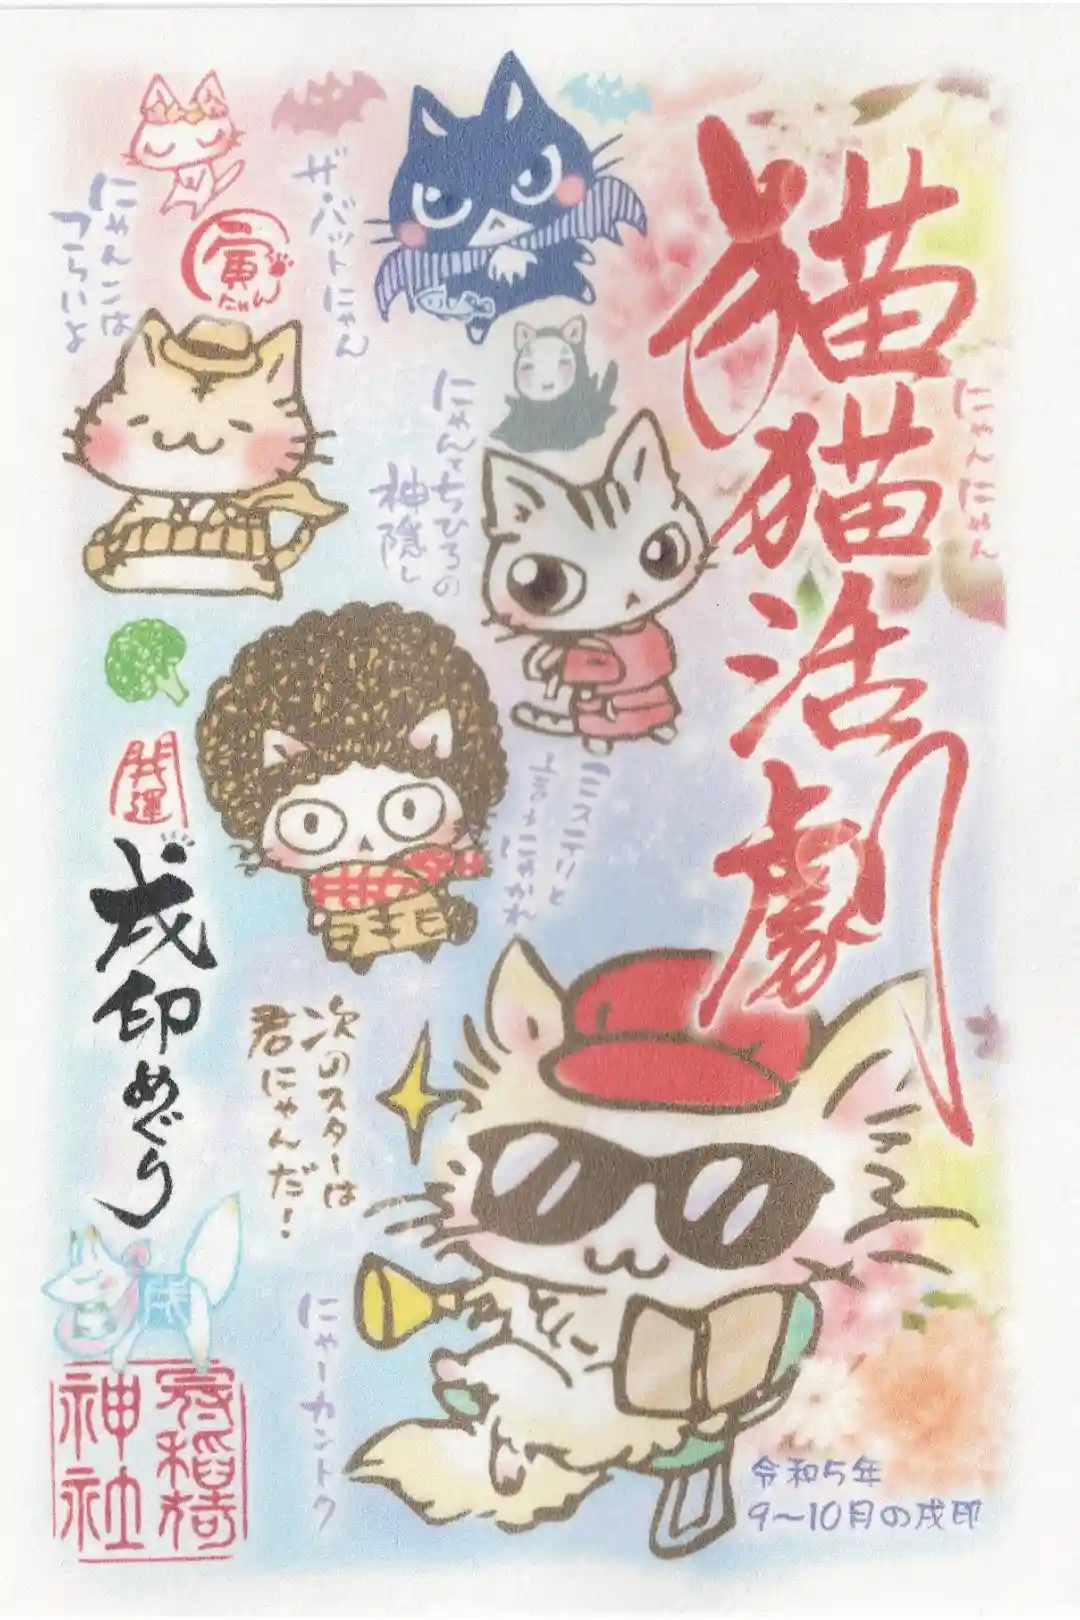 猫猫活劇
にゃんにゃん
ザ・バットにゃん
にゃんこは
つらいよ
寅
にゃん
にゃんとちひろの
神隠し
ミステリと
にゃかれ
開運
戌印めぐり
次のスターは
君にゃんだ!
にゃーカントク
戌
神社
令和5年
9〜10月の戌印